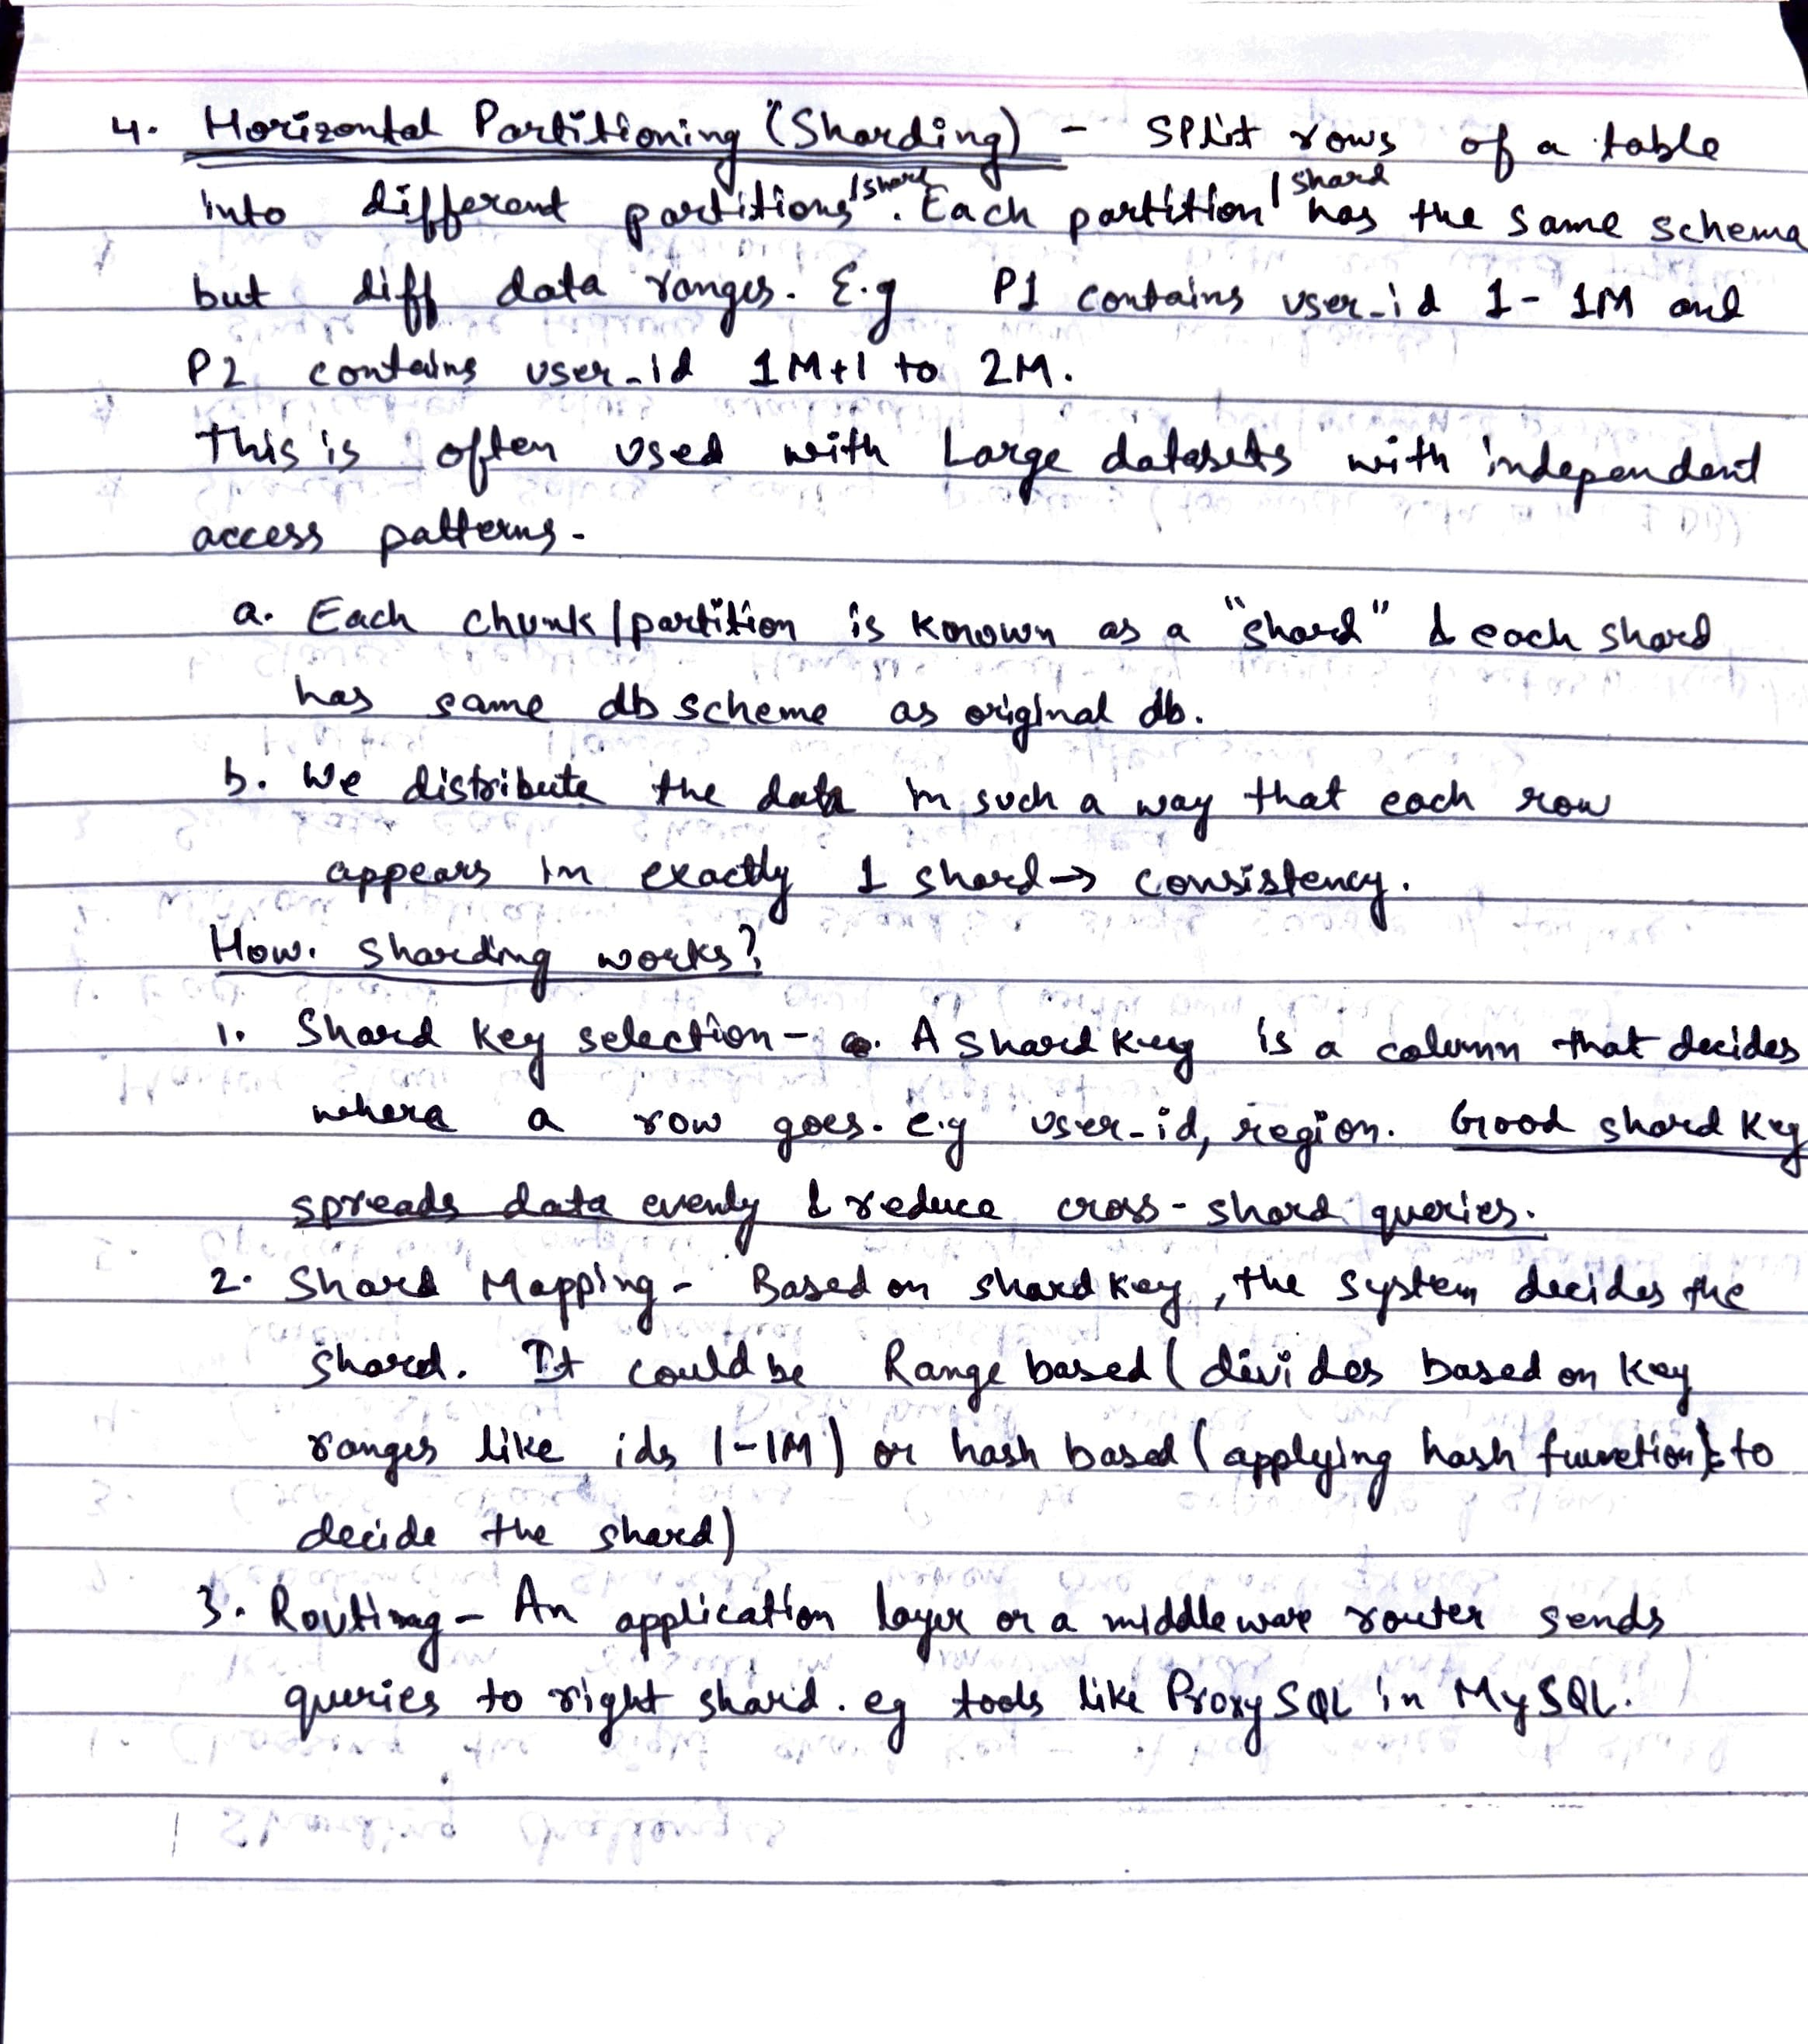 4. Horizontal Partitioning (Sharding) - Split rows of a table
into different partitions/shard. Each partition/shard has the same schema
but diff data ranges. E.g P1 contains user_id 1 - 1M and
P2 contains user_id 1M+1 to 2M.
This is often used with Large datasets with independent
access patterns.
a. Each chunk/partition is known as a "shard" & each shard
has same db scheme as original db.
b. We distribute the data in such a way that each row
appears in exactly 1 shard → consistency.
How sharding works?
1. Shard key selection - A shard key is a column that decides
where a row goes. e.g user_id, region. Good shard key
spreads data evenly & reduce cross-shard queries.
2. Shard Mapping - Based on shard key, the system decides the
shard. It could be Range based (divides based on key
ranges like ids 1-1M) or hash based (applying hash function to
decide the shard)
3. Routing - An application layer or a middleware router sends
queries to right shard. eg tools like ProxySQL in MySQL.